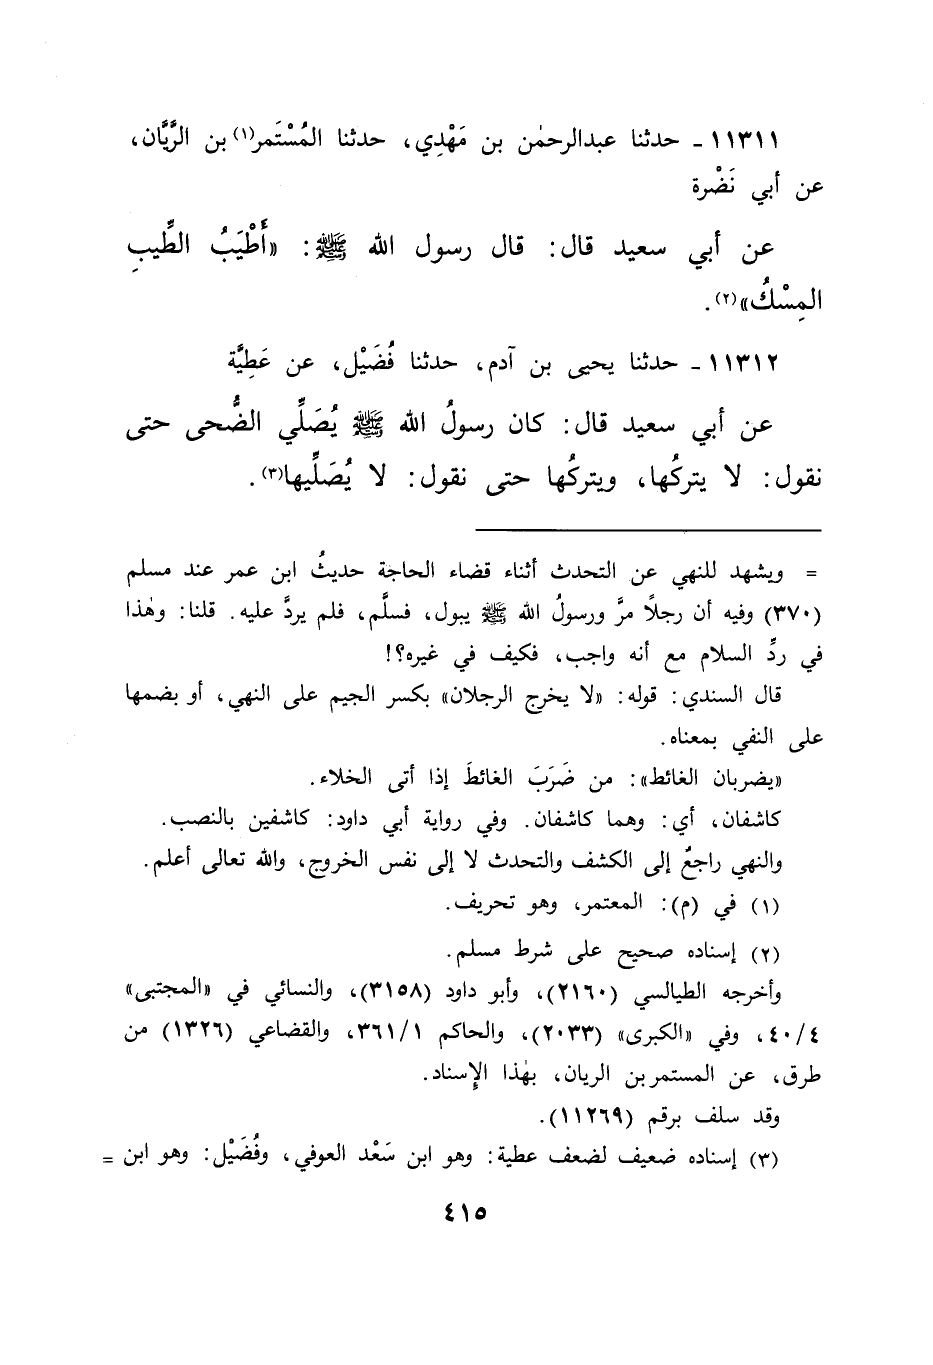 ١١٣١١ ـ حدثنا عبدالرحمٰن بن مَهْدِي، حدثنا المُسْتَمر(١) بن الرَّيَّان،
عن أبي نَضْرة
عن أبي سعيد قال: قال رسول الله ﷺ: «أَطْيَبُ الطِّيبِ
المِسْكُ»(٢).
١١٣١٢ ـ حدثنا يحيى بن آدم، حدثنا فُضَيْل، عن عَطِيَّة
عن أبي سعيد قال: كان رسولُ الله ﷺ يُصَلِّي الضُّحى حتى
نقول: لا يتركُها، ويتركُها حتى نقول: لا يُصَلِّيها(٣).
= ويشهد للنهي عن التحدث أثناء قضاء الحاجة حديثُ ابن عمر عند مسلم
(٣٧٠) وفيه أن رجلاً مرَّ ورسولُ الله ﷺ يبول، فسلَّم، فلم يردَّ عليه. قلنا: وهٰذا
في ردِّ السلام مع أنه واجب، فكيف في غيره؟!
قال السندي: قوله: «لا يخرج الرجلان» بكسر الجيم على النهي، أو بضمها
على النفي بمعناه.
«يضربان الغائط»: من ضَرَبَ الغائطَ إذا أتى الخلاء.
كاشفان، أي: وهما كاشفان. وفي رواية أبي داود: كاشفين بالنصب.
والنهي راجعٌ إلى الكشف والتحدث لا إلى نفس الخروج، والله تعالى أعلم.
(١) في (م): المعتمر، وهو تحريف.
(٢) إسناده صحيح على شرط مسلم.
وأخرجه الطيالسي (٢١٦٠)، وأبو داود (٣١٥٨)، والنسائي في «المجتبى»
٤٠/٤، وفي «الكبرى» (٢٠٣٣)، والحاكم ٣٦١/١، والقضاعي (١٣٢٦) من
طرق، عن المستمر بن الريان، بهٰذا الإسناد.
وقد سلف برقم (١١٢٦٩).
(٣) إسناده ضعيف لضعف عطية: وهو ابن سَعْد العوفي، وفُضَيْل: وهو ابن =
٤١٥